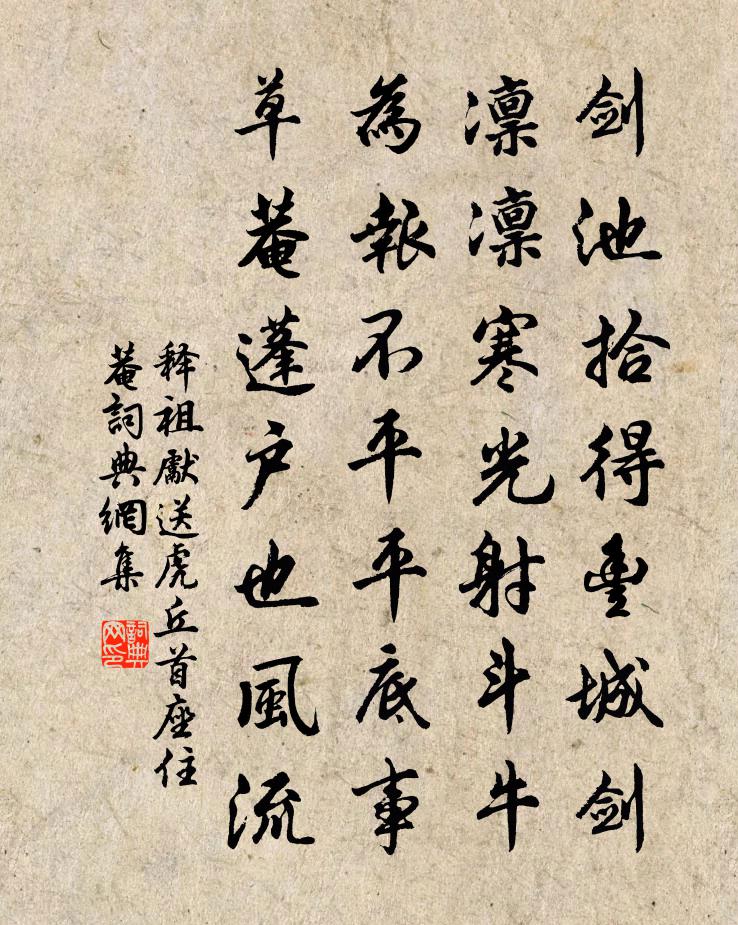 剑池拾得豊城剑
凛凛寒光射斗牛
為報不平平底事
草菴蓬户也風流
释祖獻送虎丘首座住
菴詞典網集
詞典
网印